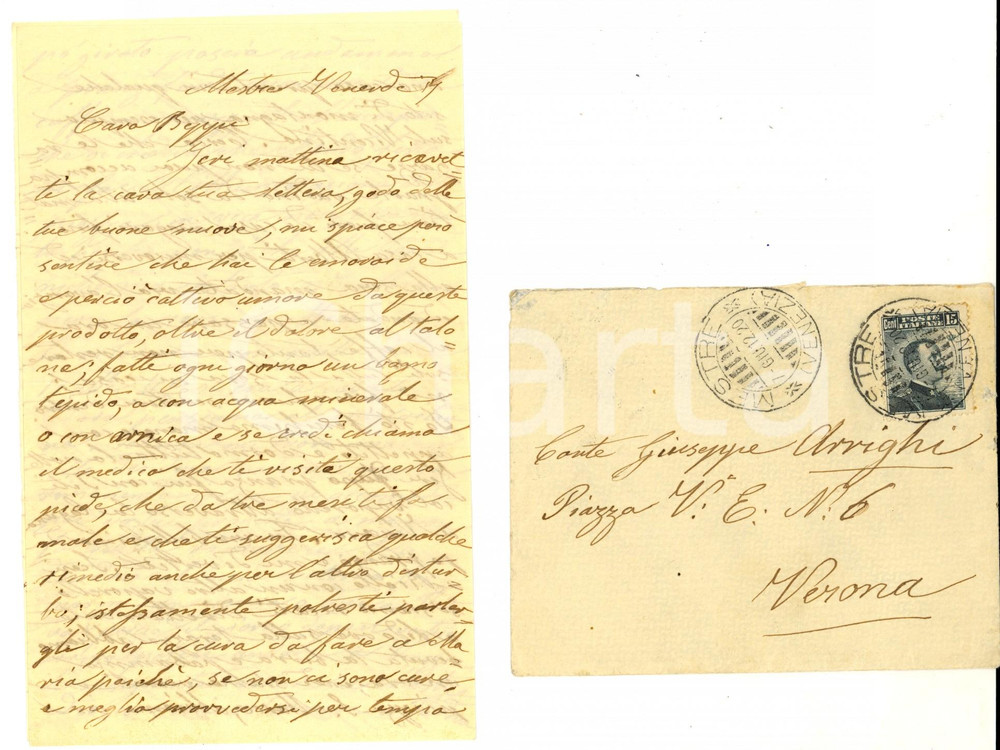 Mestre Venerdì
Caro Beppi
Ieri mattina ricevet-
ti la cara tua lettera, godo delle
tue buone nuove, mi spiace però
sentire che hai le emoroide
e perciò cattivo umore da queste
prodotto, oltre il dolore al talo-
ne; fatti ogni giorno un bagno
tepido, o con acqua minerale
o con arnica e se credi chiama
il medico che ti visiti questo
piede, che da tre mesi ti fa
male e che ti suggerisca qualche
rimedio anche per l'altro distur-
bo; istessamente potresti parlar-
gli per la cura da fare a Ma-
ria poichè, se non ci sono cure
è meglio provvedersi per tempo
iCharta
MESTRE
VENEZIA
GIU 12 20
Cent 15
POSTE ITALIANE
MESTRE
VENEZIA
Conte Giuseppe Arrighi
Piazza V. E. N. 6
Verona